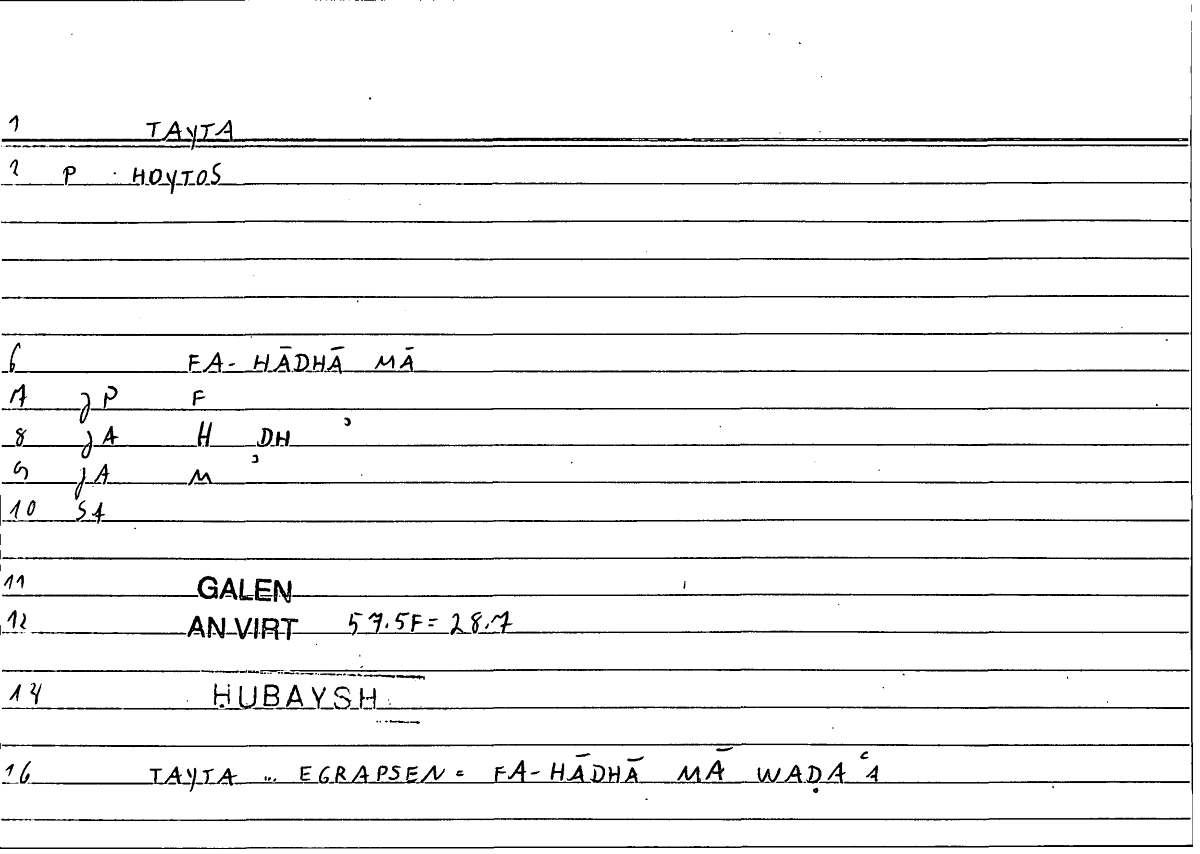 1 TAYTA
2 P HOYTOS
6 FA- HĀDHĀ MĀ
7 JP F
8 JA H DH ʾ
9 JA M ʾ
10 SA
11 GALEN
12 AN.VIRT 57.5F = 28.7
14 ḤUBAYSH
16 TAYTA ... EGRAPSEN = FA-HĀDHĀ MĀ WAḌAʿA